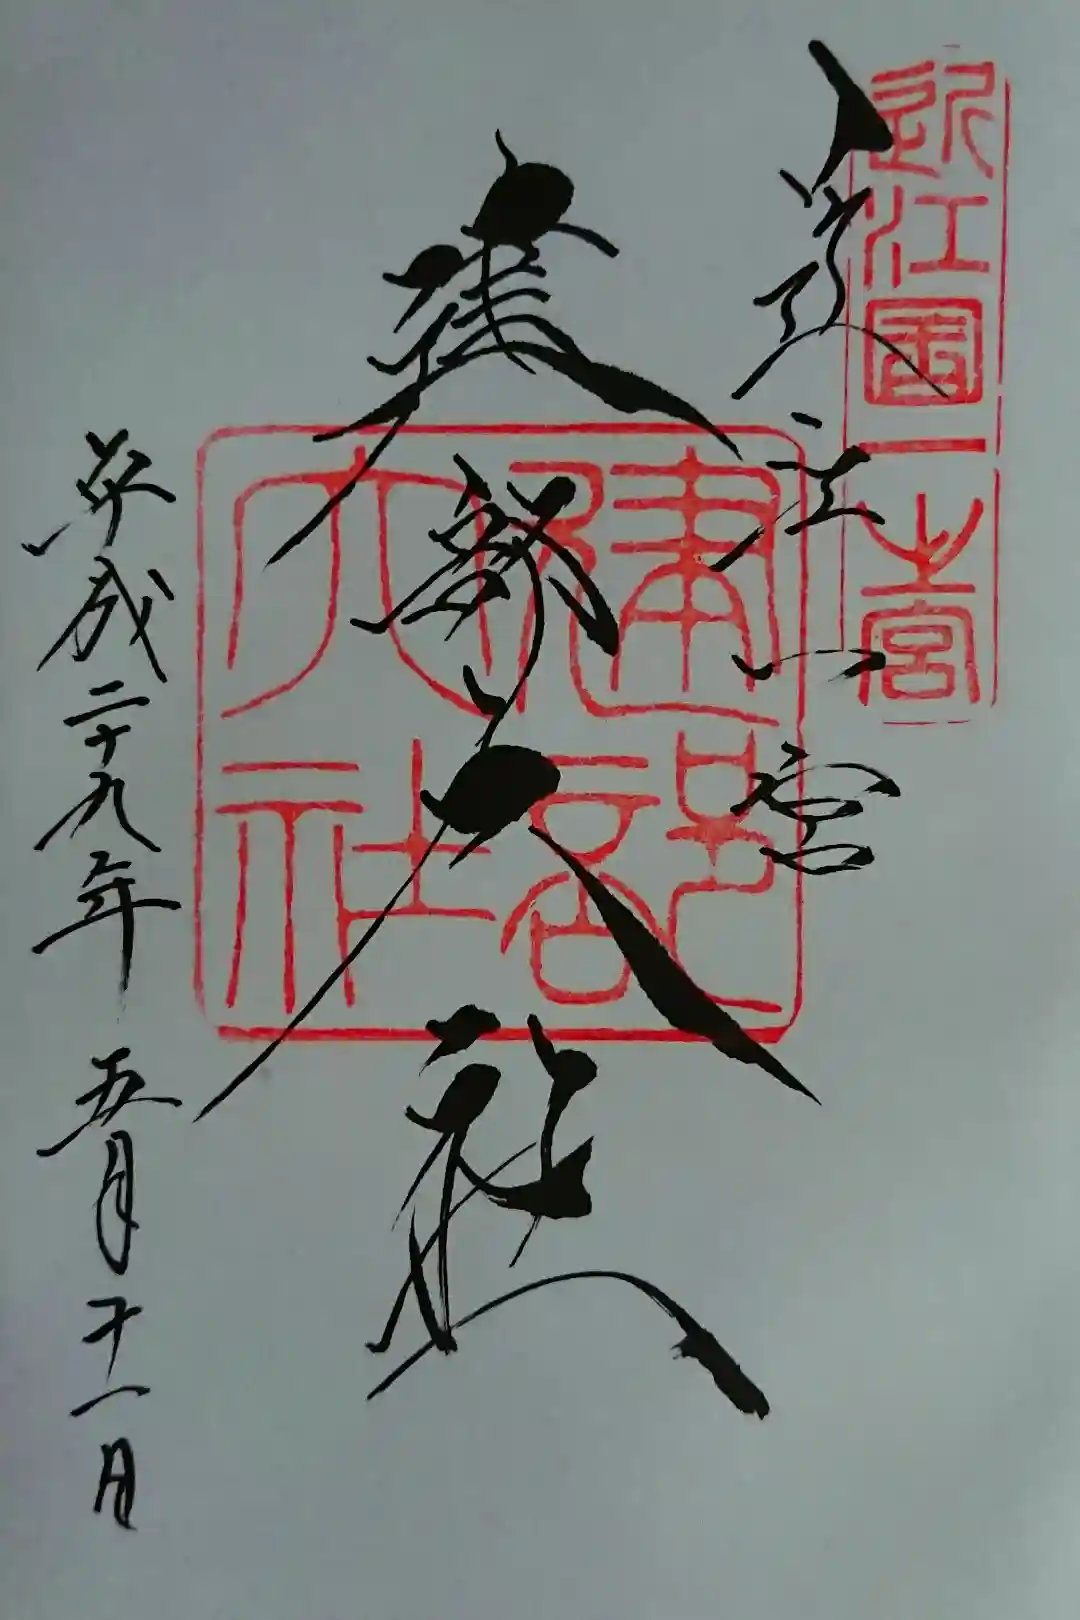 近江國一之宮
近江一宮
建部大社
建部大社
平成二十九年五月十一日